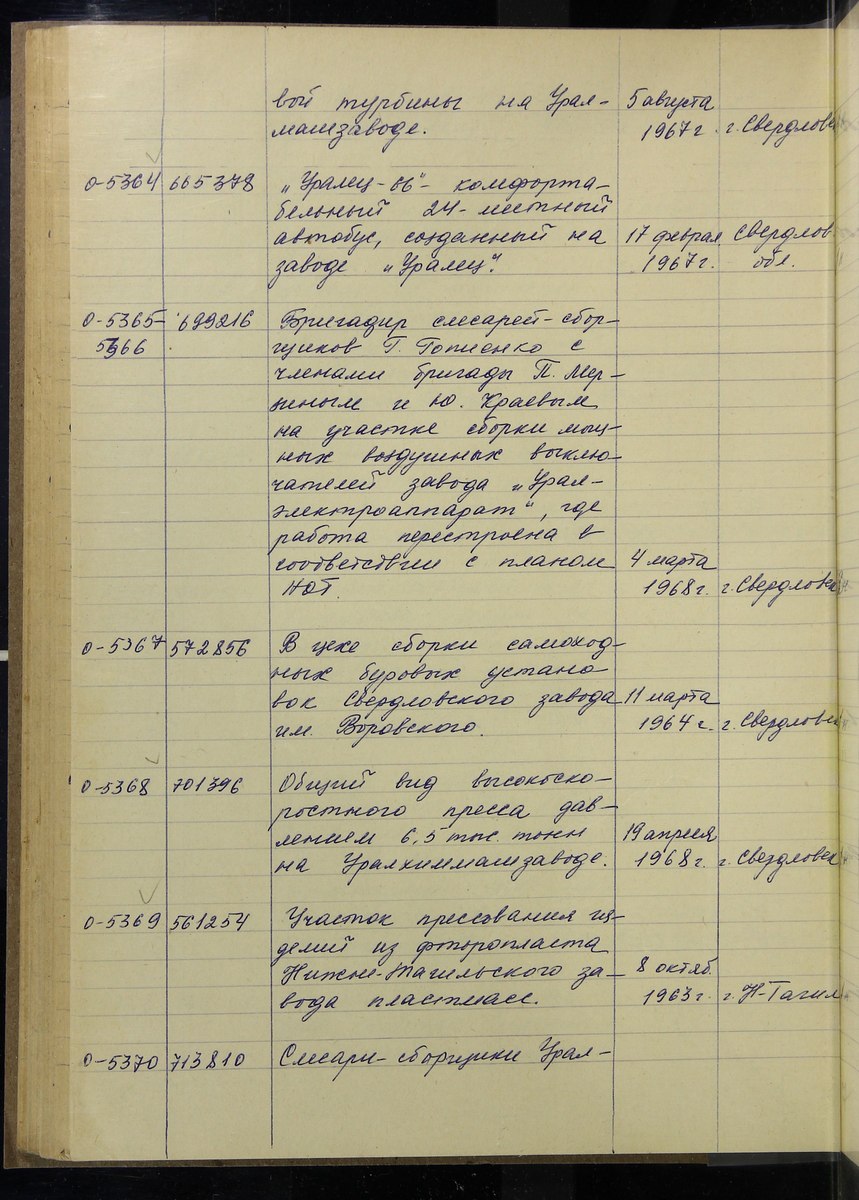 вой турбины на Урал- 5 августа
машзаводе. 1967 г. г. Свердловск
0-5364 665378 „Уралец-66"- комфорта-
бельный 24-местный
автобус, созданный на 17 февраля Свердлов
заводе „Уралец". 1967 г. обл.
0-5365- 699216 Бригадир слесарей-сбор-
5366 щиков Г. Гопиенко с
членами бригады П. Мер-
зиным и Ю. Краевым
на участке сборки мощ-
ных воздушных выклю-
чателей завода „Урал-
электроаппарат", где
работа перестроена в
соответствии с планом 4 марта
НОТ. 1968 г. г. Свердловск
0-5367 572856 В цехе сборки самоход-
ных буровых устано-
вок Свердловского завода 11 марта
им. Воровского. 1964 г. г. Свердловск
0-5368 701396 Общий вид высокоско-
ростного пресса дав-
лением 6,5 тыс. тонн 19 апреля
на Уралхиммашзаводе. 1968 г. г. Свердловск
0-5369 561254 Участок прессования из-
делий из фторопласта
Нижне-Тагильского за- 8 октяб.
вода пластмасс. 1963 г. г. Н-Тагил
0-5370 713810 Слесари-сборщики Урал-